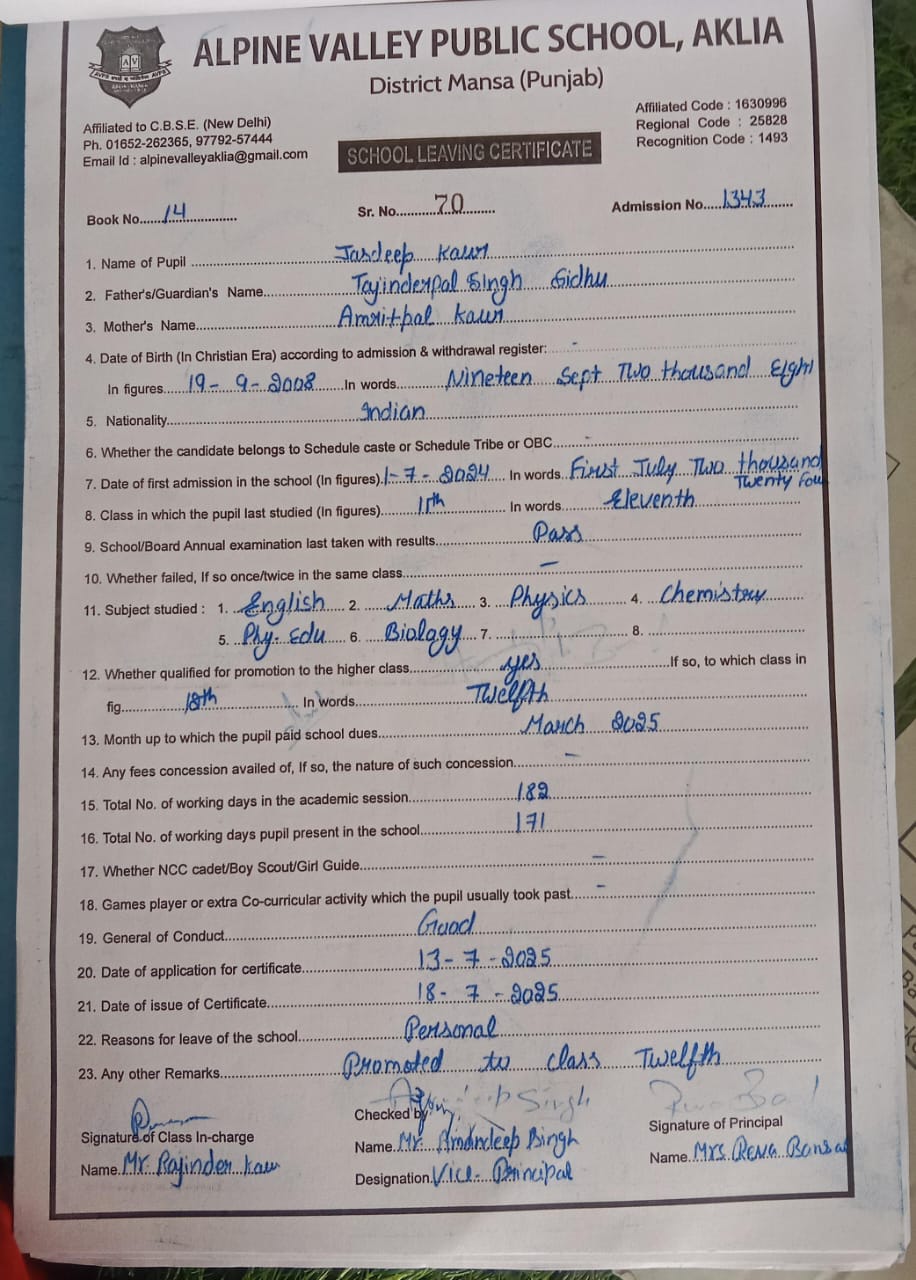 ALPINE VALLEY PUBLIC SCHOOL, AKLIA
District Mansa (Punjab)
Affiliated to C.B.S.E. (New Delhi)
Ph. 01652-262365, 97792-57444
Email Id : alpinevalleyaklia@gmail.com
Affiliated Code : 1630996
Regional Code : 25828
Recognition Code : 1493
SCHOOL LEAVING CERTIFICATE
Book No. 14 Sr. No. 70 Admission No. 1343
1. Name of Pupil Jasdeep Kaur
2. Father's/Guardian's Name Tajinderpal Singh Sidhu
3. Mother's Name Amritpal Kaur
4. Date of Birth (In Christian Era) according to admission & withdrawal register: -
In figures 19-9-2008 In words Nineteen Sept Two thousand Eight
5. Nationality Indian
6. Whether the candidate belongs to Schedule caste or Schedule Tribe or OBC -
7. Date of first admission in the school (In figures) 1-7-2024 In words First July Two thousand Twenty Four
8. Class in which the pupil last studied (In figures) 11th In words Eleventh
9. School/Board Annual examination last taken with results Pass
10. Whether failed, If so once/twice in the same class -
11. Subject studied : 1. English 2. Maths 3. Physics 4. Chemistry
5. Phy. Edu 6. Biology 7. 8.
12. Whether qualified for promotion to the higher class yes If so, to which class in
fig. 12th In words Twelfth
13. Month up to which the pupil paid school dues March 2025
14. Any fees concession availed of, If so, the nature of such concession -
15. Total No. of working days in the academic session 182
16. Total No. of working days pupil present in the school 171
17. Whether NCC cadet/Boy Scout/Girl Guide -
18. Games player or extra Co-curricular activity which the pupil usually took past -
19. General of Conduct Good
20. Date of application for certificate 13-7-2025
21. Date of issue of Certificate 18-7-2025
22. Reasons for leave of the school Personal
23. Any other Remarks Promoted to class Twelfth
Signature of Class In-charge
Name Mr. Rajinder Kaur
Checked by
Name Mr. Amandeep Singh
Designation Vice-Principal
Signature of Principal
Name Mrs Rena Bansal